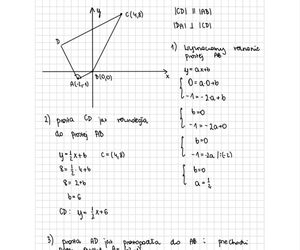 y
C(4,8)
D
A(-2,-1)
B(0,0)
x
|CD| || |AB|
|DA| ⊥ |CD|
1)
prostej AB
y=ax+b
0=a·0+b
-1=-2a+b
b=0
-1=-2a+0
b=0
-1=-2a /:(-2)
b=0
a=½
2) prosta CD jest równoległa
do prostej AB
y=½x+b C=(4,8)
8=½·4+b
8=2+b
b=6
CD: y=½x+6
3) prosta AD jest prostopadła do AB i przechodzi